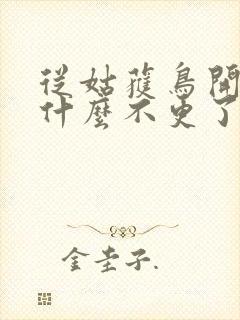 從姑蘿鳥開
什麼不更了
金圭子.